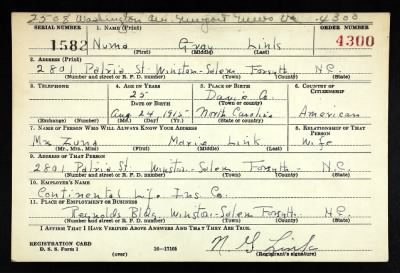 2508 Washington Ave. Newport News Va 4300
SERIAL NUMBER 1. NAME (Print) ORDER NUMBER
1582 Numa Gray Link 4300
(First) (Middle) (Last)
2. ADDRESS (Print)
2801 Patria St. Winston-Salem Forsyth N.C.
(Number and street or R. F. D. number) (Town) (County) (State)
3. TELEPHONE 4. AGE IN YEARS 5. PLACE OF BIRTH 6. COUNTRY OF CITIZENSHIP
25 Davie Co.
DATE OF BIRTH (Town or county)
Aug 24 1915 North Carolina American
(Exchange) (Number) (Mo.) (Day) (Yr.) (State or country)
7. NAME OF PERSON WHO WILL ALWAYS KNOW YOUR ADDRESS 8. RELATIONSHIP OF THAT PERSON
Marie Link Wife
(Mr., Mrs., Miss) (First) (Middle) (Last)
9. ADDRESS OF THAT PERSON
2801 Patria St. Winston-Salem Forsyth N.C.
(Number and street or R. F. D. number) (Town) (County) (State)
10. EMPLOYER'S NAME
Continental Life Ins Co.
11. PLACE OF EMPLOYMENT OR BUSINESS
Reynolds Bldg. Winston-Salem Forsyth N.C.
(Number and street or R. F. D. number) (Town) (County) (State)
I AFFIRM THAT I HAVE VERIFIED ABOVE ANSWERS AND THAT THEY ARE TRUE.
REGISTRATION CARD
D. S. S. Form 1 16-17105 N G Link
(over) (Registrant's signature)